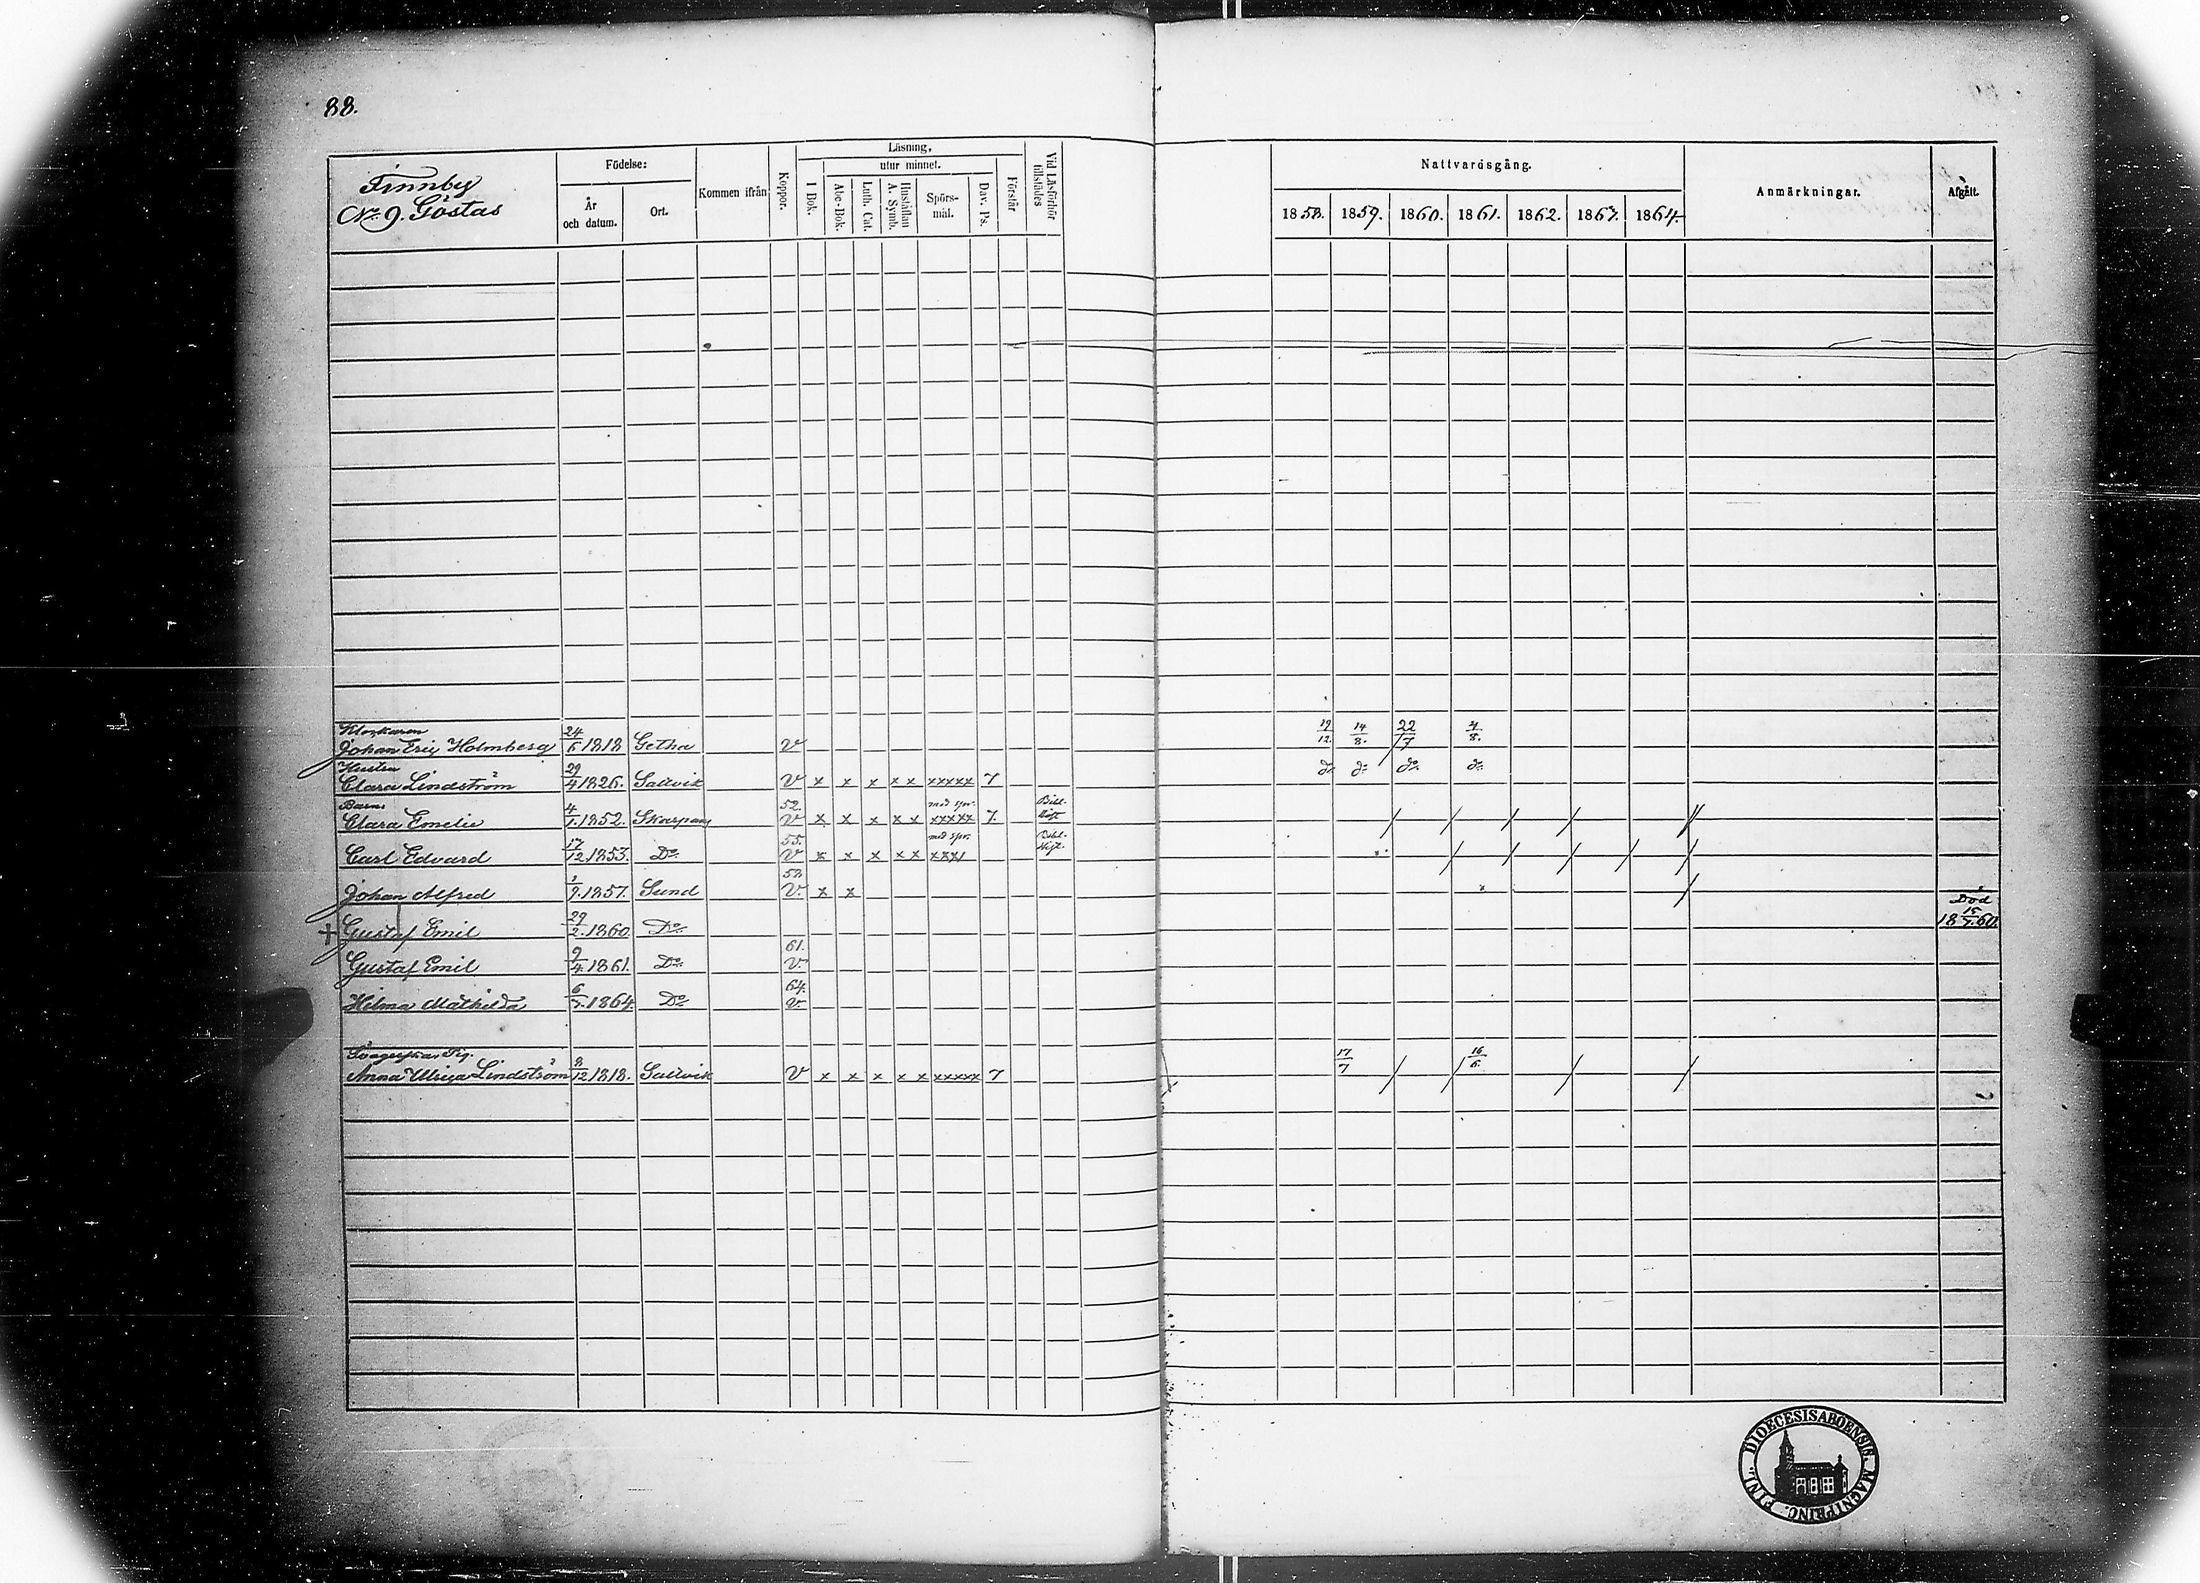 88.
Finnby
No 9. Göstas
Födelse:
År och datum.
Ort.
Kommen ifrån
Koppor.
Läsning,
utur minnet.
I Bok.
Abc-Bok.
Luth. Cat.
Hustaflan A. Symb.
Spörs-mål.
Dav. Ps.
Förstår
Vid Läsförhör tillstädes
Nattvardsgång.
1858. 1859. 1860. 1861. 1862. 1863. 1864.
Anmärkningar.
Afgått.
Klockaren
Johan Eric Holmberg 24/6 1818 Getha v 19/12. 14/8. 22/7 4/8.
Hustru
Clara Lindström 29/4 1826. Saltvik v x x x x x xxxxx 7 do do do do
Barn:
Clara Emelie 4/1. 1852. Skarpans 52. v x x x x x med spr. xxxxx 7. Bibl.
Carl Edvard 17/12 1853. Do 55. v x x x x x med spr. xxxx Bibl.
Johan Alfred 1857. Sund v. x x
+ Gustaf Emil 29/2. 1860 Do Död 18 60.
Gustaf Emil 9/4. 1861. Do 61. v.
Hilma Mathilda 1864. Do 64. v.
Svägerskan Pig.
Anna Ulrica Lindström 8/12 1818. Saltvik v x x x x x xxxxx 7 17/7 16/6.
DIOECESIS ABOENSIS MAGNI PRINC. FINL.